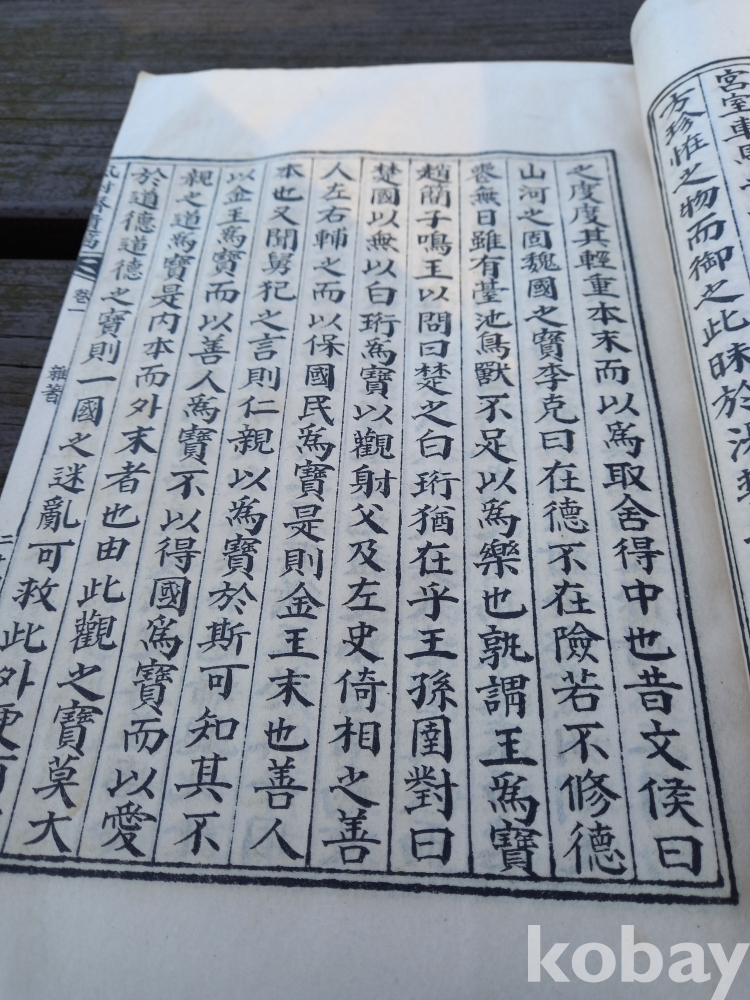 宮室車馬
方珍恠之物而御之此昧於
之度度其輕重本末而以爲取舍得中也昔文侯曰
山河之固魏國之寶李克曰在德不在險若不修德
喪無日雖有臺池鳥獸不足以爲樂也孰謂玉爲寶
趙簡子鳴玉以問曰楚之白珩猶在乎王孫圉對曰
楚國以無以白珩爲寶以觀射父及左史倚相之善
人左右輔之而以保國民爲寶是則金玉末也善人
本也又聞舅犯之言則仁親以爲寶於斯可知其不
以金玉爲寶而以善人爲寶不以得國爲寶而以愛
親之道爲寶是內本而外末者也由此觀之寶莫大
於道德道德之寶則一國之迷亂可救此外更
卷一
雜著
kobay